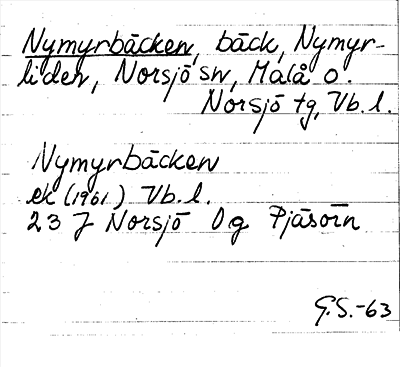 Nymyrbäcken, bäck, Nymyr-
liden, Norsjö sn, Malå o.
Norsjö tg, Vb. l.
Nymyrbäcken
ek (1961) Vb. l.
23 J Norsjö Og Pjäsörn
G.S.-63